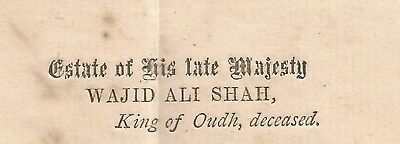 Estate of His late Majesty
WAJID ALI SHAH,
King of Oudh, deceased.